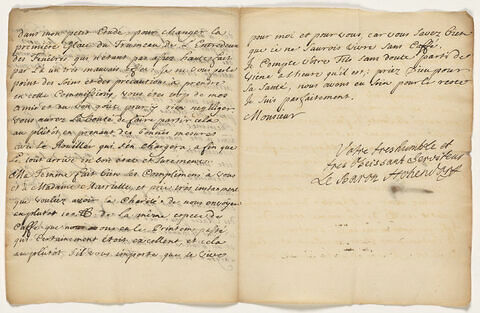 dans mon petit Etude pour changer la
première Glace du Trumeau de l'Entredeux
des Fenêtres qui n'étant pas assez haute fait
par là un très mauvais Effet. Je ne vous parle
point des Soins et des précautions à prendre
en cette Commission, vous êtes trop de mes
amis et du bon goût pour y rien negliger.
vous aurez la bonté de faire partir cela
au plutôt, en prenant des bonnes mesures
avec le Roullier qui s'en chargera, afin que
le tout arrive en bon état et surement.
Ma Femme fait bien ses Complimens à vous
et à Madame et prie très instament
que vouliez avoir la Charité de nous envoyer
au plutôt 100 lb de la même espece de
Caffé que nous avons eu le Printems passé
qui certainement étoit excellent, et cela
au plutôt, s'il vous importe que je vive
pour moi et pour vous, car vous savez bien
que je ne saurois vivre sans Caffé.
Je Compte Votre Fils sans doute parti de
Viene à l'heure qu'il est; priez Dieu pour
sa santé, nous avons eu soin pour le reste
Je Suis parfaitement.
Monsieur
Votre treshumble et
tres Obeissant Serviteur
Le Baron